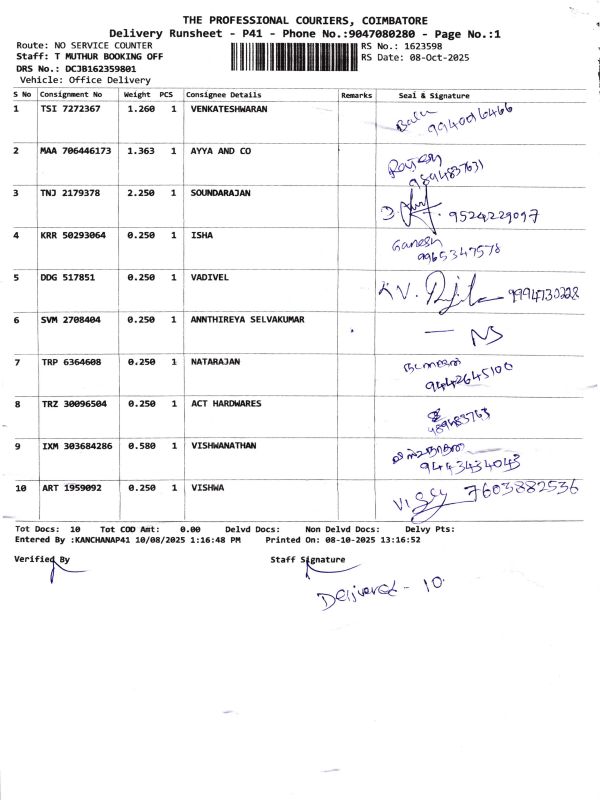 THE PROFESSIONAL COURIERS, COIMBATORE
Delivery Runsheet - P41 - Phone No.:9047080280 - Page No.:1
Route: NO SERVICE COUNTER RS No.: 1623598
Staff: T MUTHUR BOOKING OFF RS Date: 08-Oct-2025
DRS No.: DCJB162359801
Vehicle: Office Delivery
S No Consignment No Weight PCS Consignee Details Remarks Seal & Signature
1 TSI 7272367 1.260 1 VENKATESHWARAN
Balu
9940016466
2 MAA 706446173 1.363 1 AYYA AND CO
Rajesh
9894837631
3 TNJ 2179378 2.250 1 SOUNDARAJAN
9524229097
4 KRR 50293064 0.250 1 ISHA
Ganesh
9965347578
5 DDG 517851 0.250 1 VADIVEL
K V. 9994730228
6 SVM 2708404 0.250 1 ANNTHIREYA SELVAKUMAR
— NS
7 TRP 6364608 0.250 1 NATARAJAN
9442645100
8 TRZ 30096504 0.250 1 ACT HARDWARES
9 IXM 303684286 0.580 1 VISHWANATHAN
9443434043
10 ART 1959092 0.250 1 VISHWA
7603882536
Tot Docs: 10 Tot COD Amt: 0.00 Delvd Docs: Non Delvd Docs: Delvy Pts:
Entered By :KANCHANAP41 10/08/2025 1:16:48 PM Printed On: 08-10-2025 13:16:52
Verified By Staff Signature
Delivered - 10